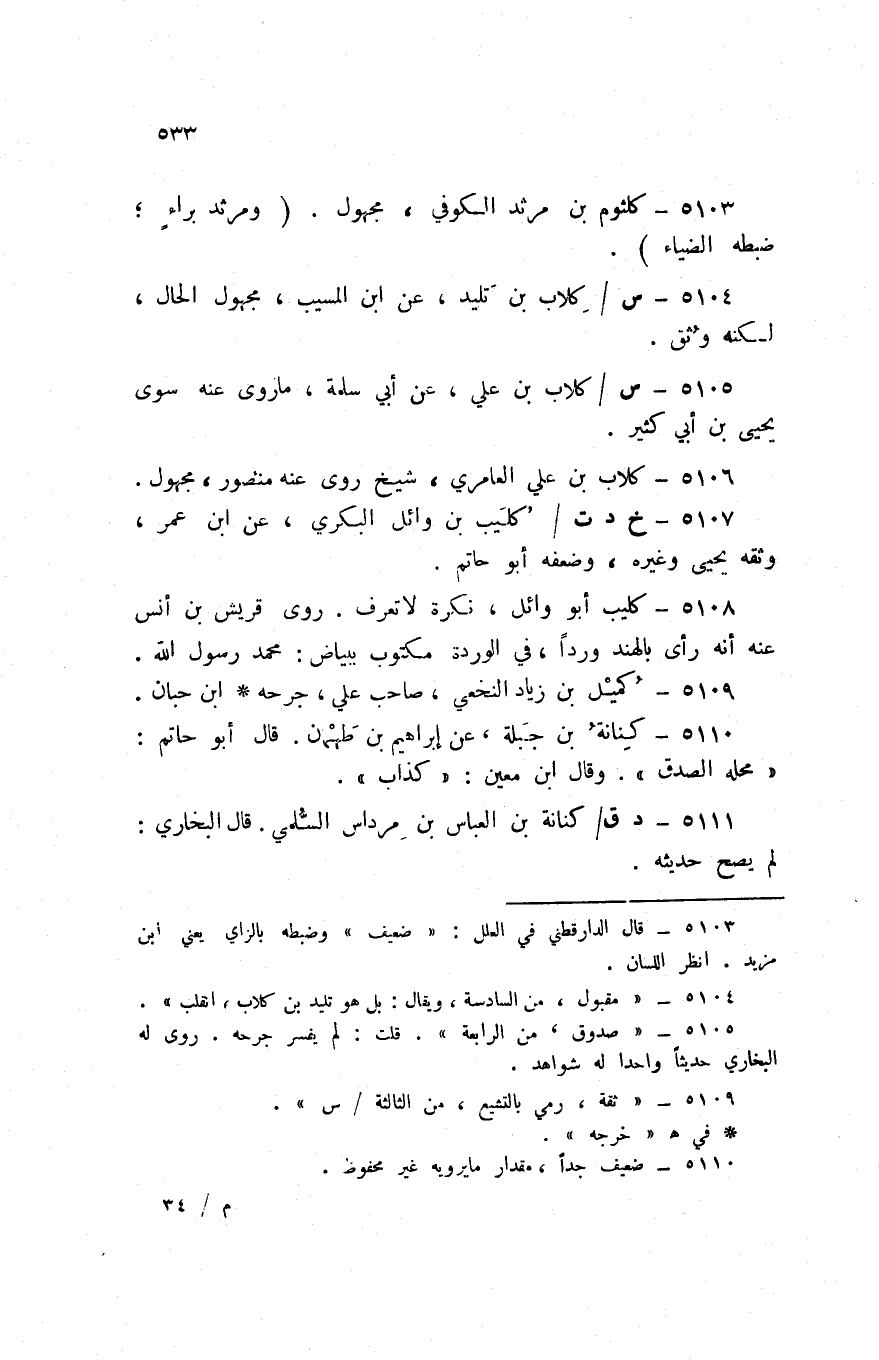 ٥٣٣
٥١٠٣ ـ كلثوم بن مرثد الكوفي ، مجهول . ( ومرثد براءٍ ؛
ضبطه الضياء ) .
٥١٠٤ ـ س / كِلاب بن تَليد ، عن ابن المسيب ، مجهول الحال ،
لكنه وُثق .
٥١٠٥ ـ س / كلاب بن علي ، عن أبي سلمة ، ماروى عنه سوى
يحيى بن أبي كثير .
٥١٠٦ ـ كلاب بن علي العامري ، شيخ روى عنه منصور ، مجهول .
٥١٠٧ ـ خ د ت / كُلَيب بن وائل البكري ، عن ابن عمر ،
وثقه يحيى وغيره ، وضعفه أبو حاتم .
٥١٠٨ ـ كليب أبو وائل ، نكرة لاتعرف . روى قريش بن أنس
عنه أنه رأى بالهند ورداً ، في الوردة مكتوب ببياض : محمد رسول الله .
٥١٠٩ ـ كُمَيْل بن زياد النخعي ، صاحب علي ، جرحه * ابن حبان .
٥١١٠ ـ كِنانةُ بن جَبَلة ، عن إبراهيم بن طَهْمان . قال أبو حاتم :
« محله الصدق » . وقال ابن معين : « كذاب » .
٥١١١ ـ د ق / كنانة بن العباس بن مِرداس السُّلمي . قال البخاري :
لم يصح حديثه .
٥١٠٣ ـ قال الدارقطني في العلل : « ضعيف » وضبطه بالزاي يعني ابن
مزيد . انظر اللسان .
٥١٠٤ ـ « مقبول ، من السادسة ، ويقال : بل هو تليد بن كلاب ، انقلب » .
٥١٠٥ ـ « صدوق ، من الرابعة » . قلت : لم يفسر جرحه . روى له
البخاري حديثاً واحدا له شواهد .
٥١٠٩ ـ « ثقة ، رمي بالتشيع ، من الثالثة / س » .
* في هـ « خرجه » .
٥١١٠ ـ ضعيف جداً ، مقدار مايرويه غير محفوظ .
م / ٣٤